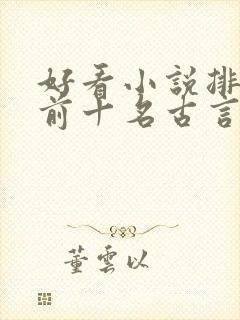 好看小說排
前十名古言
董雲以